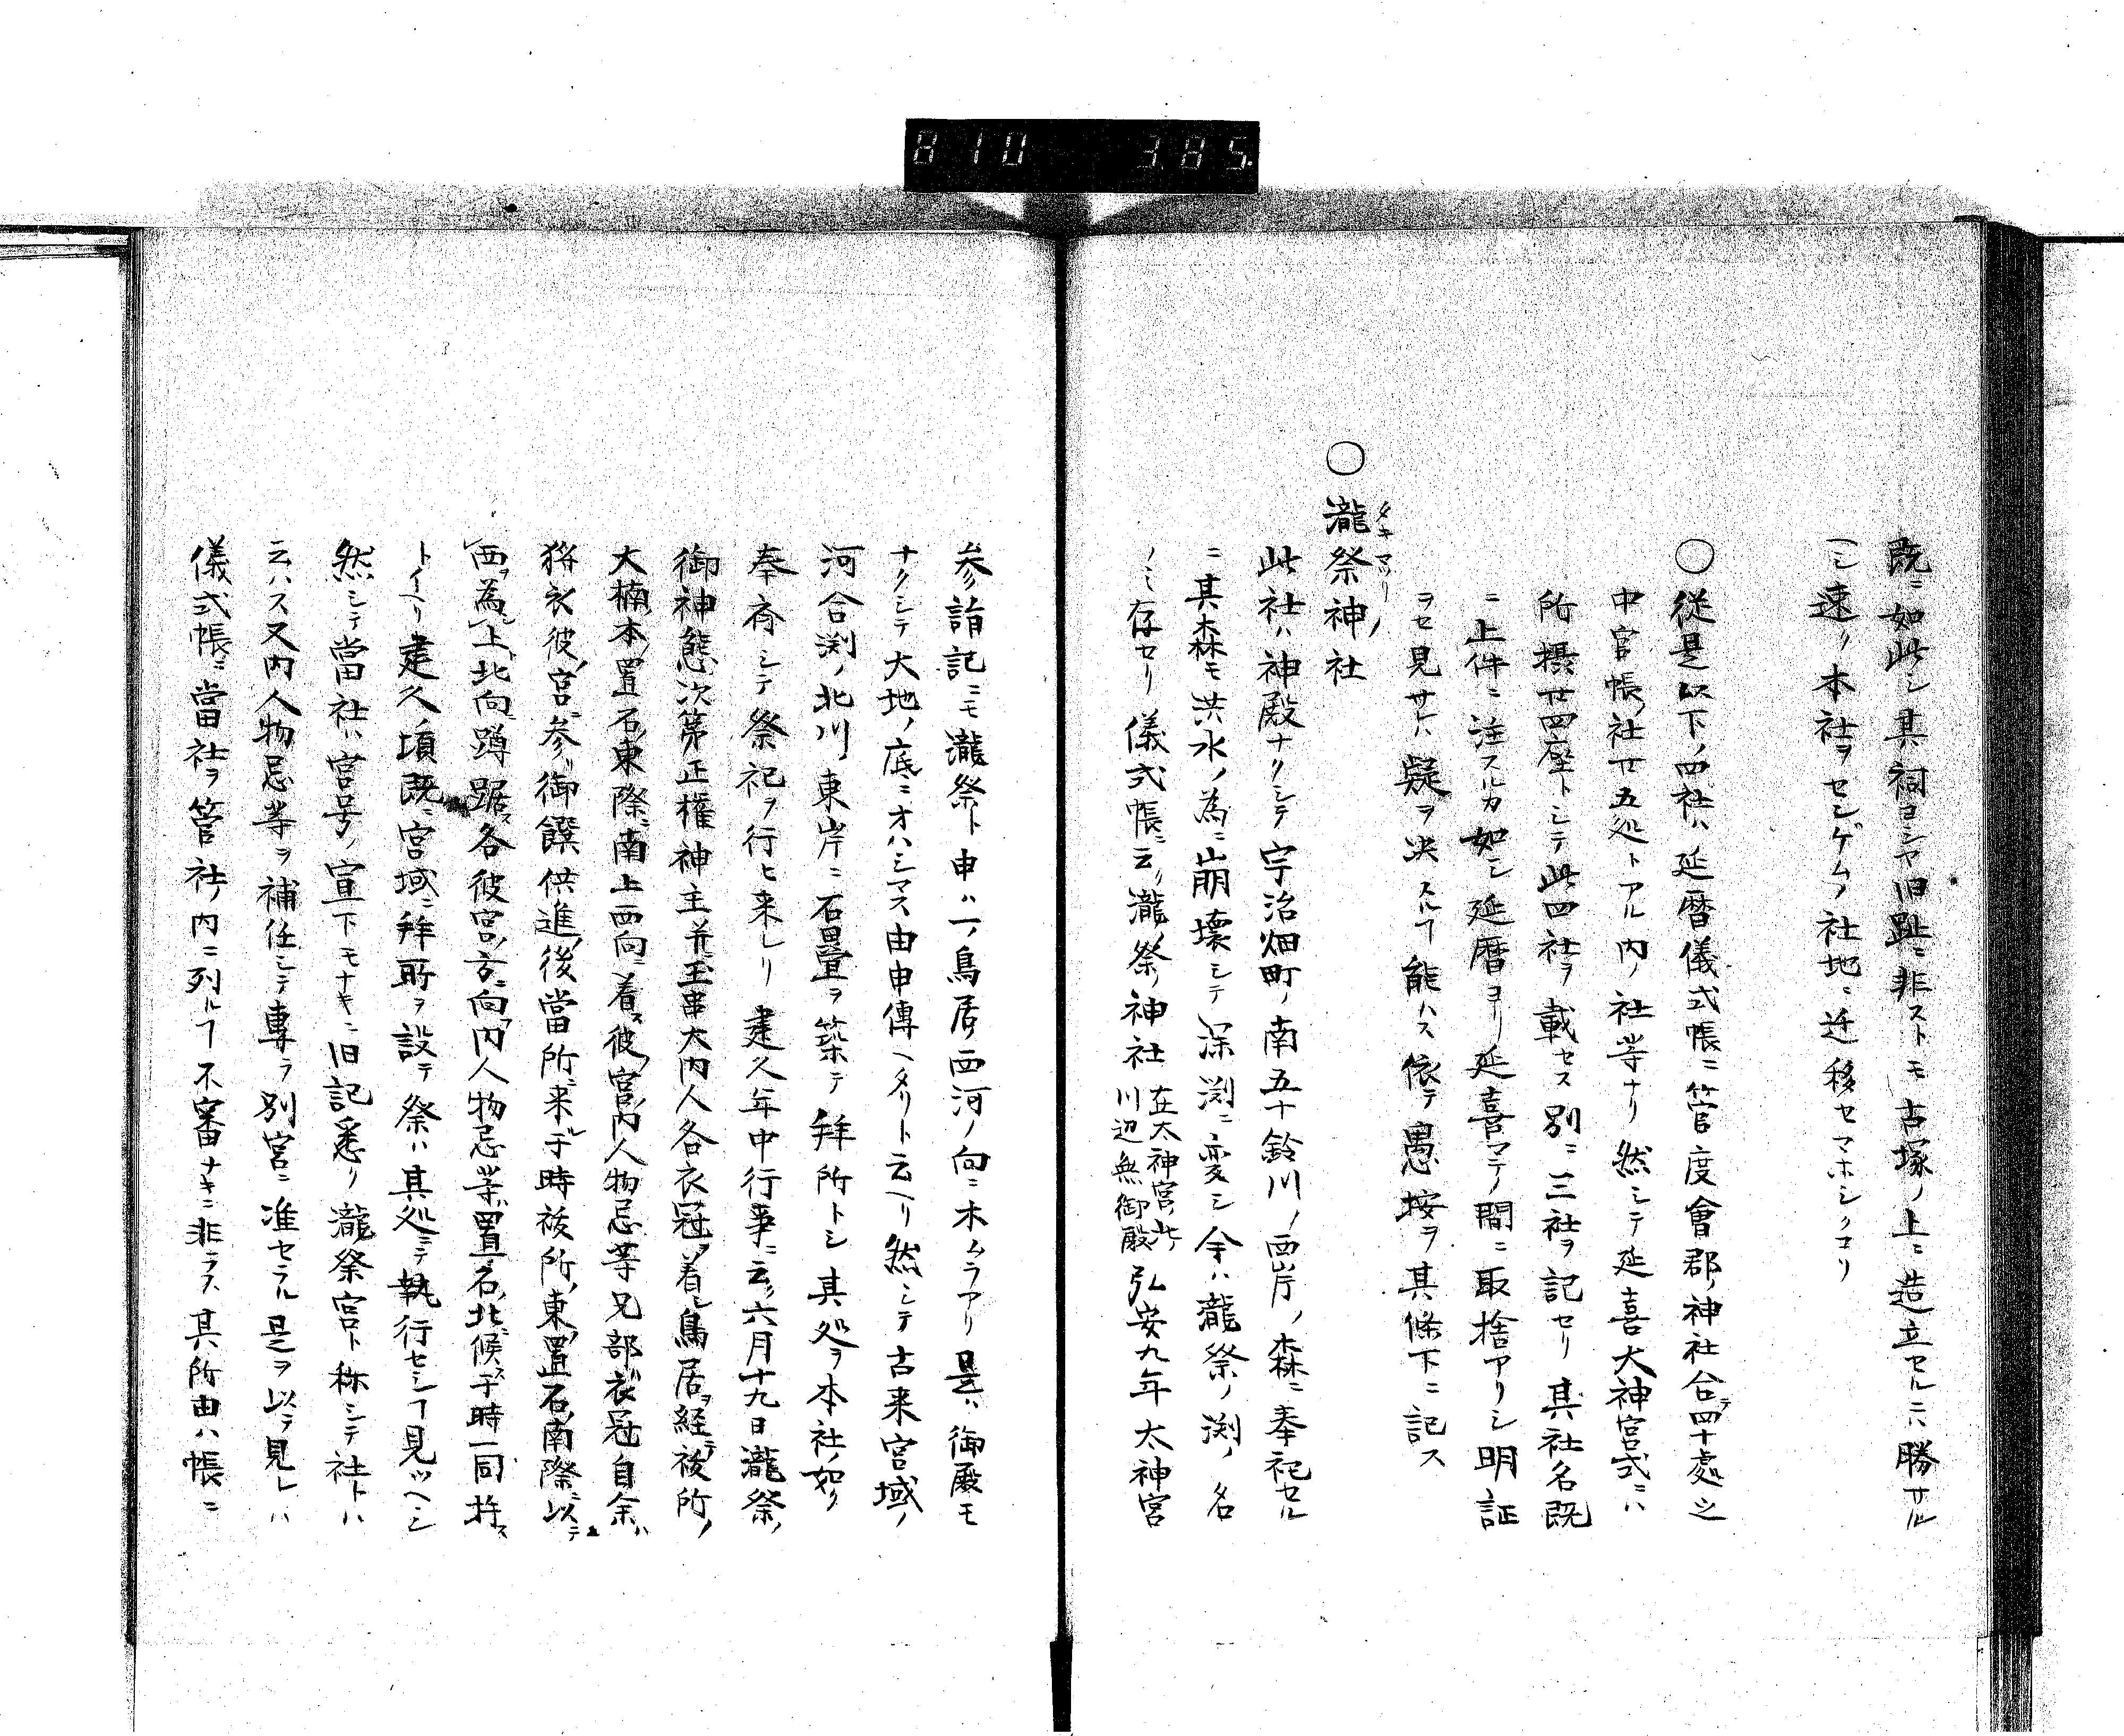 810 385.
既ニ如此シ其祠ヨシヤ旧趾ニ非ストモ古塚ノ上ニ造立セルニハ勝サル
ヘシ速ク本社ヲセンゲムノ社地ニ迁移セマホシクコソ
○従是以下ノ四社ハ延暦儀式帳ニ管度會郡ノ神社合テ四十處之
中官帳ノ社廿五処トアル内ノ社等ナリ然シテ延喜大神宮式ニハ
所摂廿四座トシテ此四社ヲ載セス別ニ三社ヲ記セリ其社名既
ニ上件ニ注スルカ如シ延暦ヨリ延喜マテノ間ニ取捨アリシ明証
ヲモ見サレハ疑ヲ决スルヿ能ハス依テ愚按ヲ其條下ニ記ス
○瀧祭神社
タキマツリノ
此社ハ神殿ナクシテ宇治畑町ノ南五十鈴川ノ西岸ノ森ニ奉祀セル
ニ其森モ洪水ノ為ニ崩壊シテ深渕ニ変シ今ハ瀧祭ノ渕ノ名
ノミ存セリ儀式帳ニ云ク瀧祭ノ神社在太神宮此川辺無御殿弘安九年太神宮
参詣記ニモ瀧祭ト申ハ一ノ鳥居ノ西河ノ向ニ木ムラアリ是ハ御殿モ
ナクシテ大地ノ底ニオハシマス由申傳ヘタリト云ヘリ然シテ古来宮域ノ
河合渕ノ北川ノ東岸ニ石疊ヲ築テ拜所トシ其処ヲ本社ノ如ク
奉齊シテ祭祀ヲ行ヒ来レリ建久年中行事ニ云ク六月十九日瀧祭ノ
御神態次第正權神主并ニ玉串大内人各衣冠ヲ着シ鳥居ヲ経テ祓所ノ
大楠ノ本ノ置石ノ東際ニ南上西向ニ着ス彼ノ宮ノ内人物忌等兄部ハ衣冠自余ハ
狩衣彼ノ宮ニ参リ御饌供進ノ後當所ニ来ル于時祓所ノ東ノ置石ノ南際ニ以テ
西ヲ為シ上ト北向ニ蹲踞ス各彼宮ノ方ニ向フ内人物忌業置石ノ北ニ候ス于時一同拜ス
トイヘリ建久ノ頃既ニ宮域ニ拜所ヲ設テ祭ハ其処ニテ執行セシヿ見ツヘシ
然シテ當社ハ宮号ノ宣下モナキニ旧記悉ク瀧祭宮ト称シテ社トハ
云ハス又内人物忌等ヲ補任シテ專ラ別宮ニ准セラル是ヲ以テ見レハ
儀式帳ニ當社ヲ管社ノ内ニ列ルヿ不審ナキニ非ラス其所由ハ帳ニ